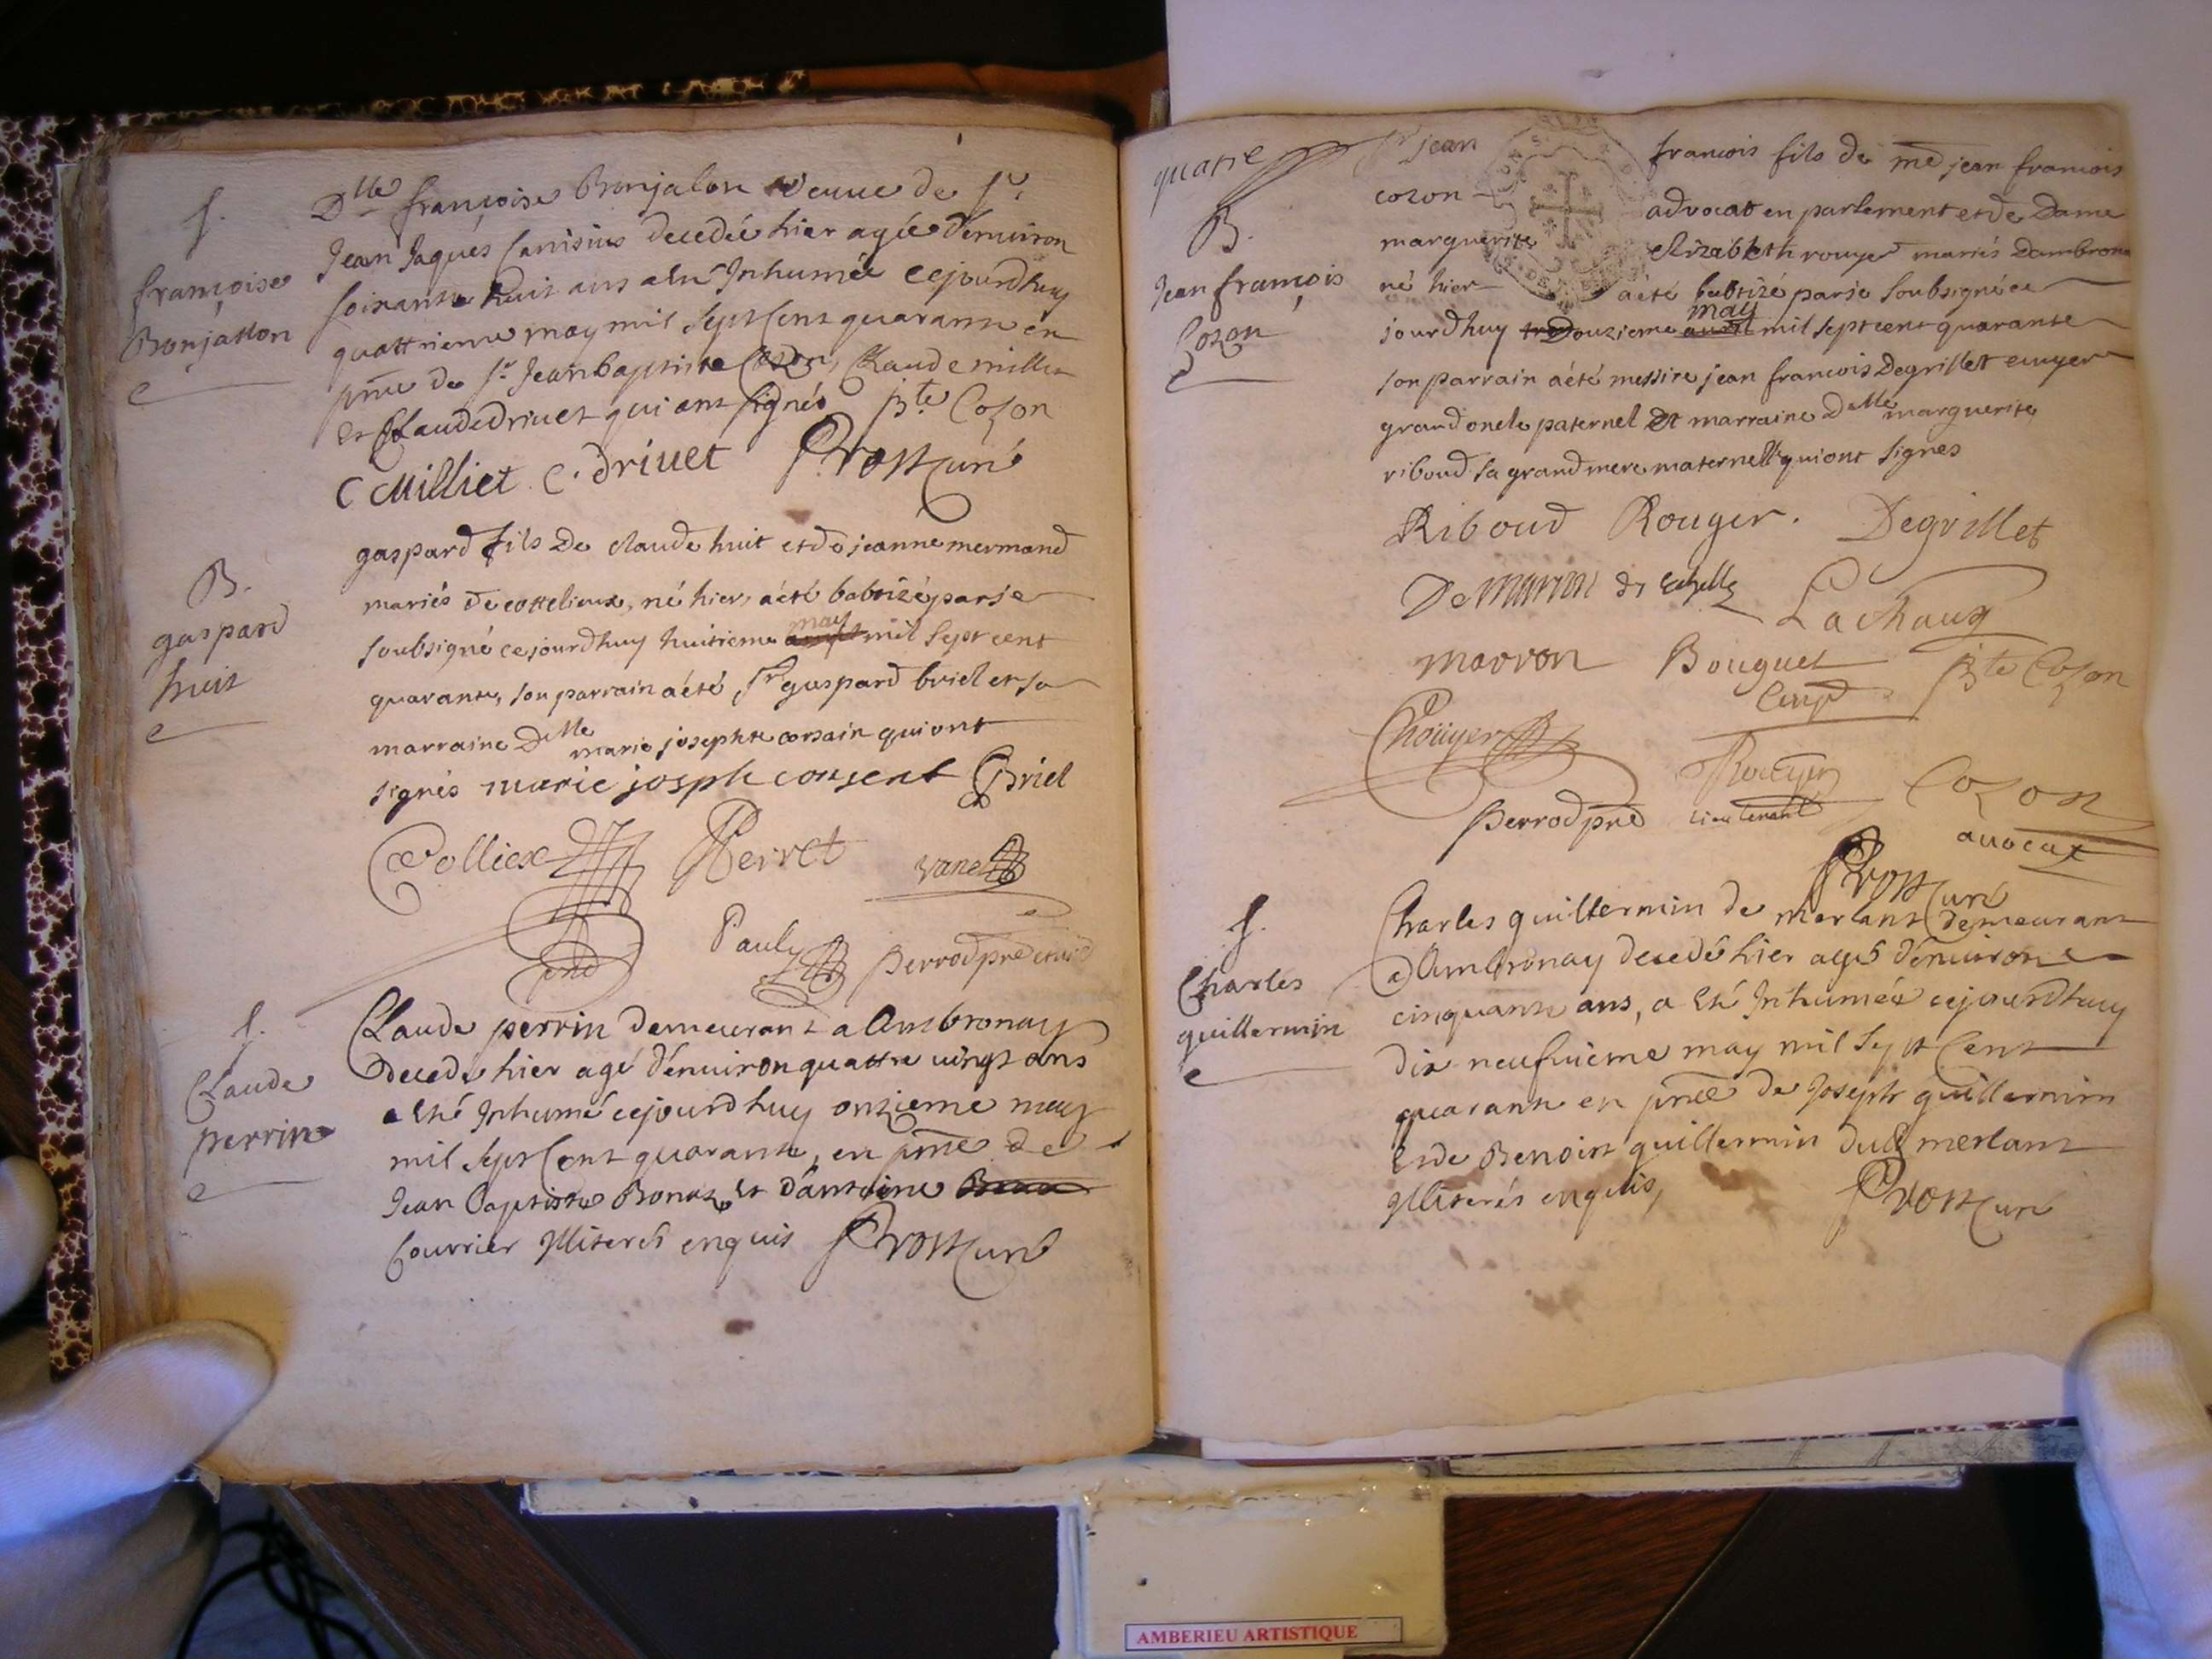 S.
françoise
Bonjallon
Dlle françoise Bonjalon veuve de Sr.
Jean Jaques Canisius decedée hier agée d'énuiron
soixante huit ans a éte Inhumée cejourdhuy
quattrieme may mil sept Cent quarante en
pnce de Sr Jean baptiste Cozon, Claude millet
et Claude driuet qui ont signés Bte Cozon
C Milliet C. driuet Prost Curé
B.
gaspard
huit
gaspard fils de claude huit et de jeanne mermand
mariés de cottelieux, né hier, a été babtizé par je
soubsigné cejourdhuy huitieme may mil sept cent
quarante, son parrain a été Sr gaspard briel et sa
marraine Delle marie josephte corsain qui ont
signés marie josph consent Briel
Colliex Perret
vanel
Pauly Perrod pre
S.
Claude
perrin
Claude perrin demeurant a Ambronay
decedé hier agé d'énuiron quattre uingt ans
a été Inhumé cejourdhuy onzieme may
mil sept Cent quarante, en pnce de
Jean Baptiste Bonaz et d'antoine
Courrier Illiterés enquis Prost Curé
quatre
B.
Jean françois
Cozon
Sr jean francois fils de me jean francois
cozon advocat en parlement et de Dame
marguerite elizabeth rouyer mariés Dambronay
né hier a été babtizé par je soubsigné ce
jourdhuy douzieme may mil sept cent quarante
son parrain a été messire jean francois Degrillet ecuyer
grand oncle paternel et marraine Delle marguerite
riboud sa grand mere maternelle qui ont signes
Riboud Rouger. Degrillet
De Marron
Lachaux
marron Bouguet Bte Cozon
Rouyer
Rouyer
lieutenant
Perrod pre
Cozon
avocat
Prost Curé
S.
Charles
guillermin
Charles guillermin de merlant demeurant
a Ambronay decedé hier agé d'énuiron
cinquante ans, a été Inhumée cejourdhuy
dix neufuieme may mil sept Cent
quarante en pnce de Joseph guillermin
et de Benoist guillermin dud merlant
Illiterés enquis, Prost Curé
AMBERIEU ARTISTIQUE